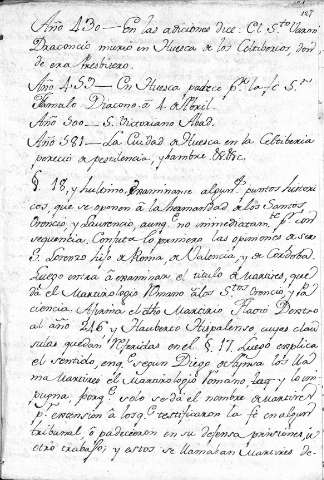 187
Año 430 — En las adiciones dice: El Sto Varon
Draconcio murio en Huesca de los Celtiberios, don-
de era Presbitero.
Año 453 — En Huesca padece pr la fe S.
Filamalo Dracono á 4 de Abril.
Año 500 — S. Victoriano Abad.
Año 581 — La Ciudad de Huesca en la Celtiberia
pereció de pestilencia, y hambre &c. &c.
§. 18, y hultimo. Examinanse algunos puntos historicos
cos, que se oponen á la hermandad de los Santos
Orencio, y Laurencio, aunqe no inmediatamte pr con-
sequencia. Confuta lo primero las opiniones de ser
S. Lorenzo hijo de Roma, de Valencia, y de Cordoba.
Luego entra á examinar el titulo de Martires, que
da el Martirologio Romano á los Stos Orencio y Pa-
ciencia. Afirma el dho Martirio Flavio Dextro
al año 246 y Hauberto Hispalense, cuyas clau-
sulas quedan referidas en el §. 17. Luego explica
el sentido, en qe segun Diego de Aynsa los lla-
ma Martires el Martirologio Romano, y lo im-
pugna, porqe solo se dá el nombre de Martires
pr extension á los qe testificaron la fe en algun
tribunal, ó padecieron en su defensa prisiones, u
otro trabajo, y estos se llamaban Martires de-